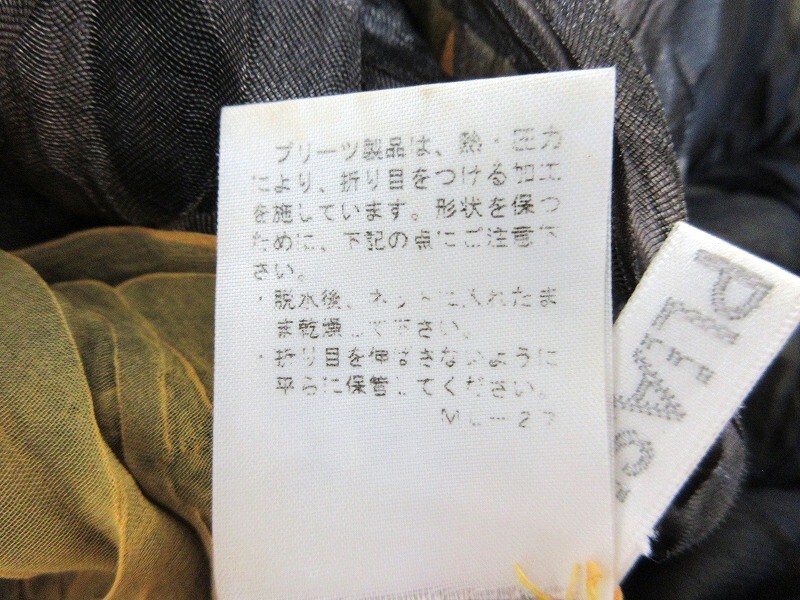 プリーツ製品は、熱・圧力
により、折り目をつける加工
を施しています。形状を保つ
ために、下記の点にご注意下
さい。
・脱水後、ネットに入れたま
ま乾燥して下さい。
・折り目を伸ばさないように
平らに保管してください。
PLEATS